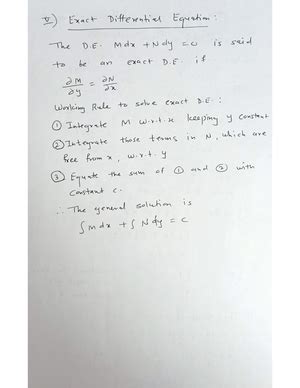 V) Exact Differential Equation:
The D.E. Mdx + Ndy = 0 is said
to be an exact D.E. if
∂M/∂y = ∂N/∂x
Working Rule to solve exact D.E.:
① Integrate M w.r.t. x keeping y constant
② Integrate those terms in N, which are
free from x, w.r.t. y
③ Equate the sum of ① and ② with
constant c.
∴ The general solution is
∫Mdx + ∫Ndy = c